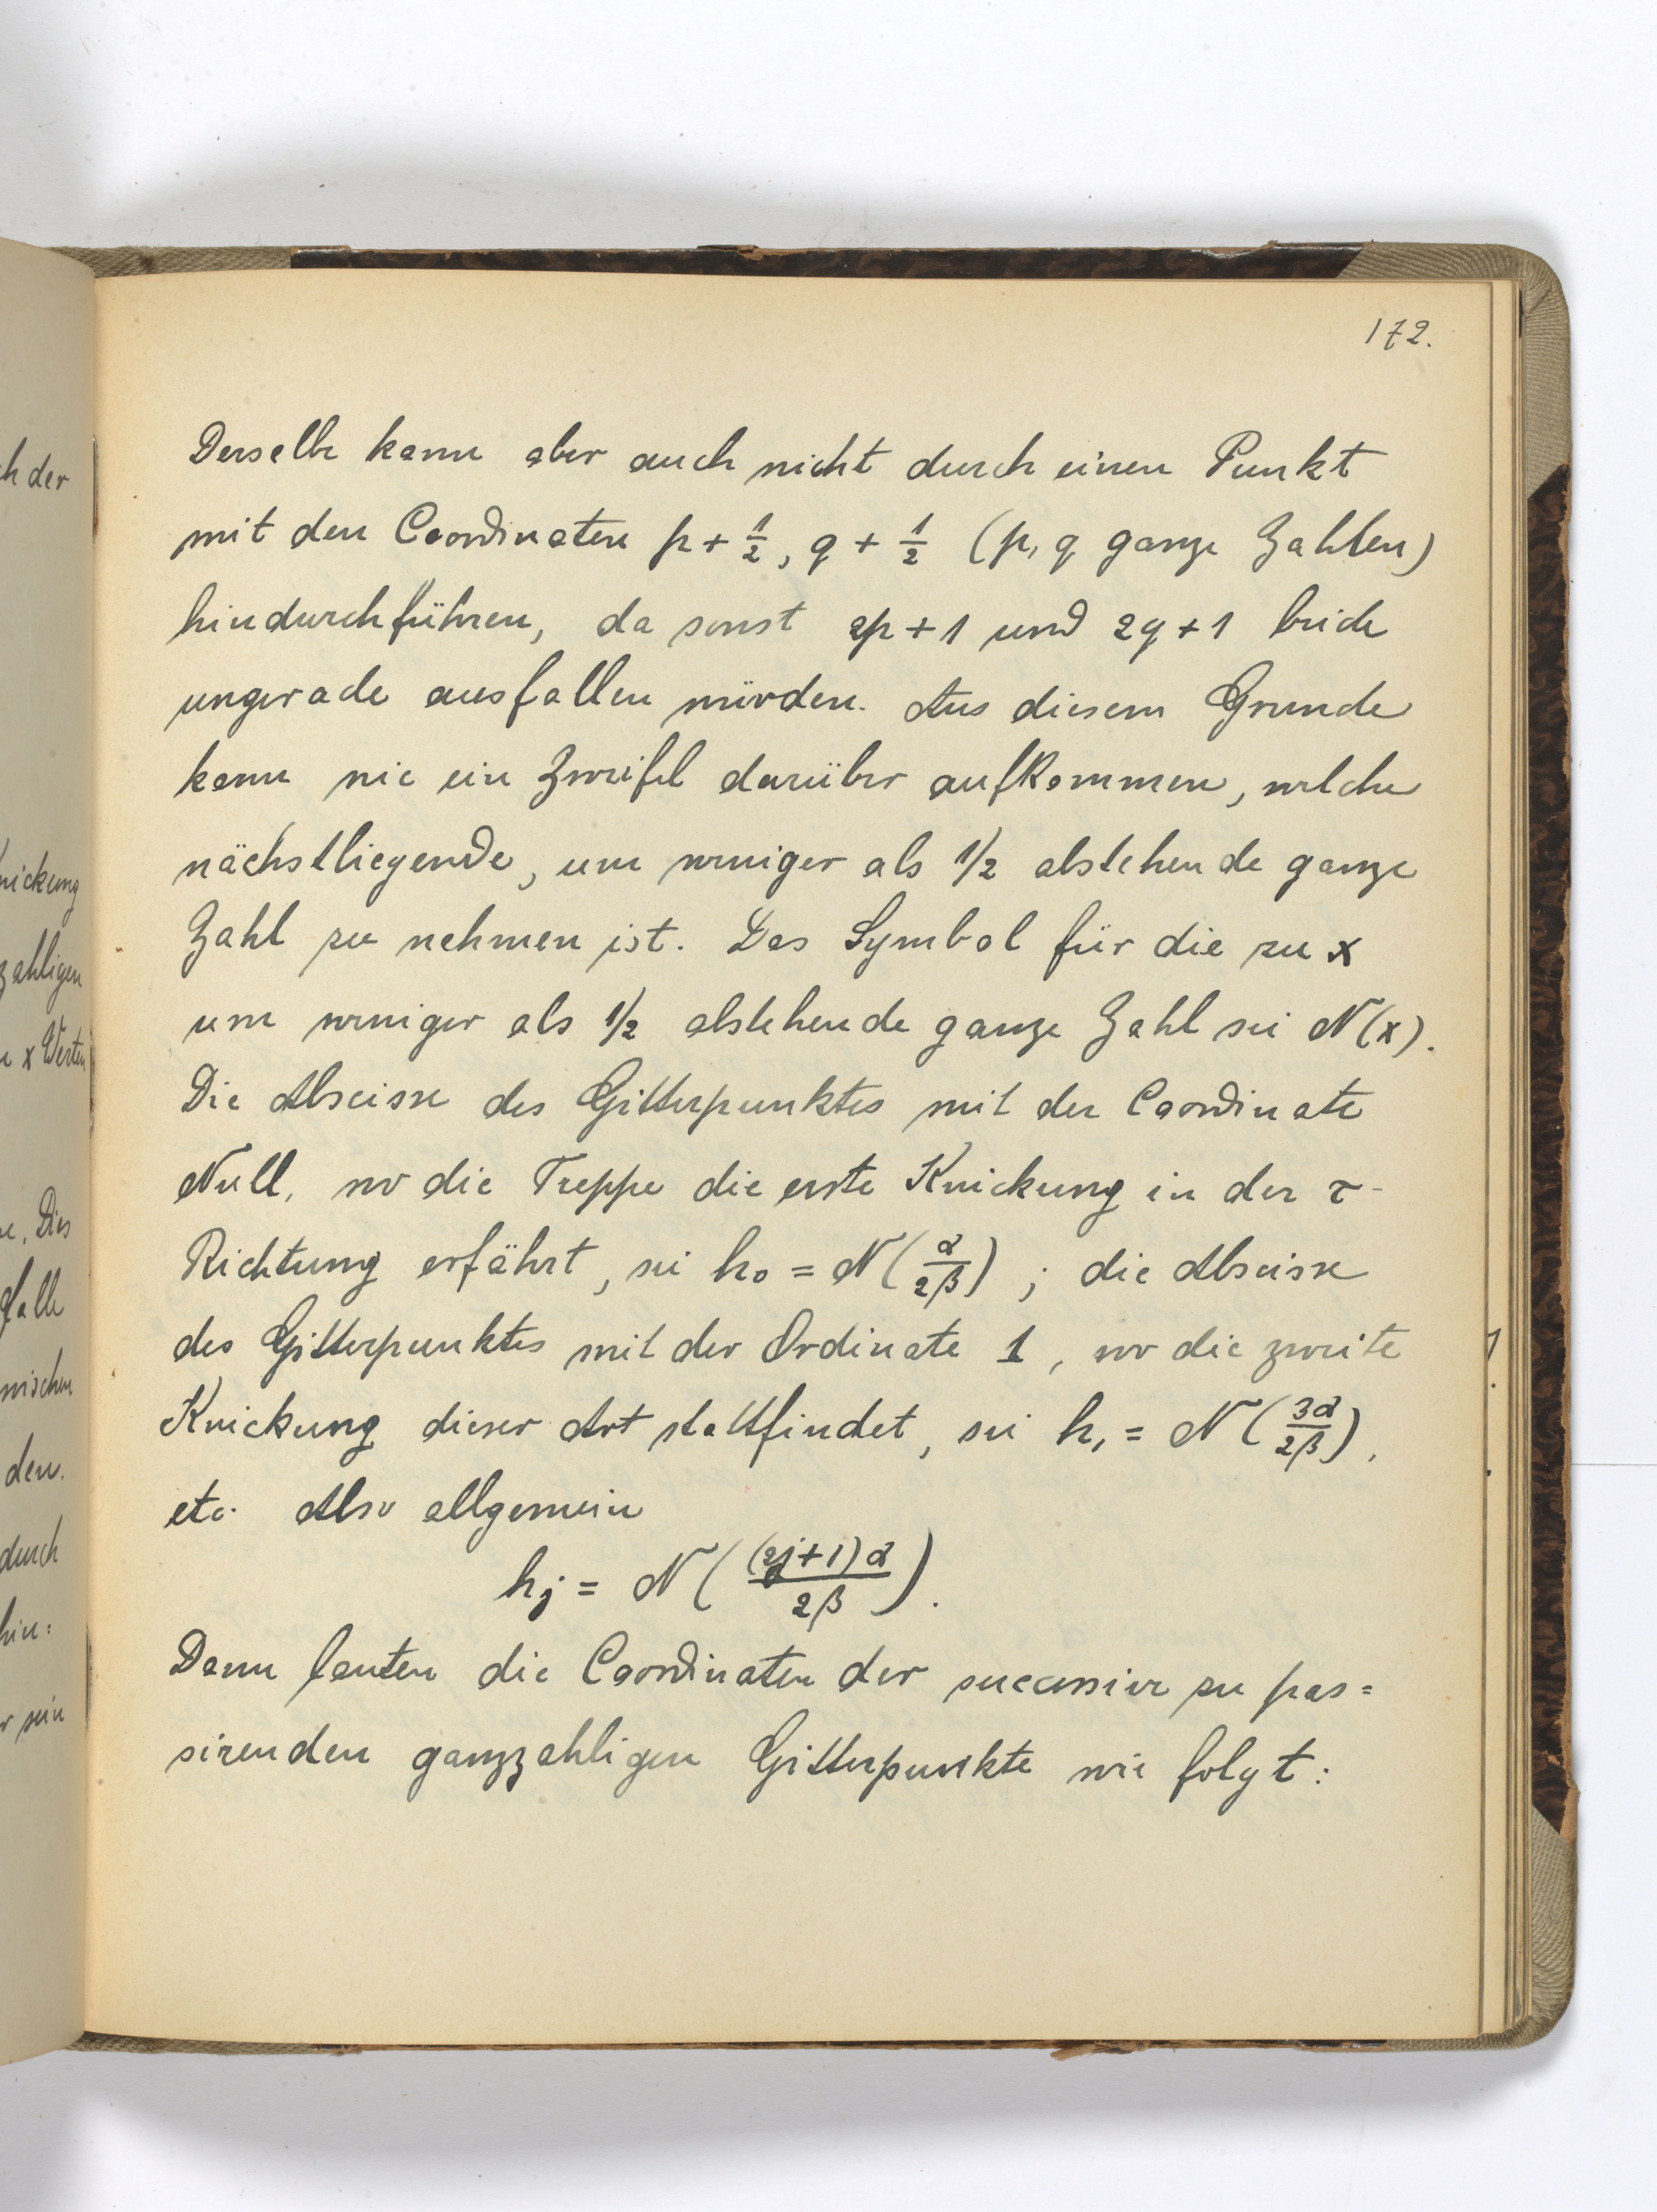 172.
Derselbe kann aber auch nicht durch einen Punkt
mit den Coordinaten p + 1/2, q + 1/2 (p, q ganze Zahlen)
hindurchführen, da sonst 2p + 1 und 2q + 1 beide
ungerade ausfallen würden. Aus diesem Grunde
kann nie ein Zweifel darüber aufkommen, welche
nächstliegende, um weniger als 1/2 abstehende ganze
Zahl zu nehmen ist. Das Symbol für die zu x
um weniger als 1/2 abstehende ganze Zahl sei N(x).
Die Abscisse des Gitterpunktes mit der Coordinate
Null, wo die Treppe die erste Knickung in der τ-
Richtung erfährt, sei h₀ = N(α/2β) ; die Abscisse
des Gitterpunktes mit der Ordinate 1, wo die zweite
Knickung dieser Art stattfindet, sei h₁ = N(3α/2β),
etc. Also allgemein
hj = N((2j+1)α/2β).
Dann lauten die Coordinaten der successive zu pas=
sirenden ganzzahligen Gitterpunkte wie folgt:
ch der
nickung
zahligen
x Werten
Dies
falle
wischen
den.
durch
hin=
sein